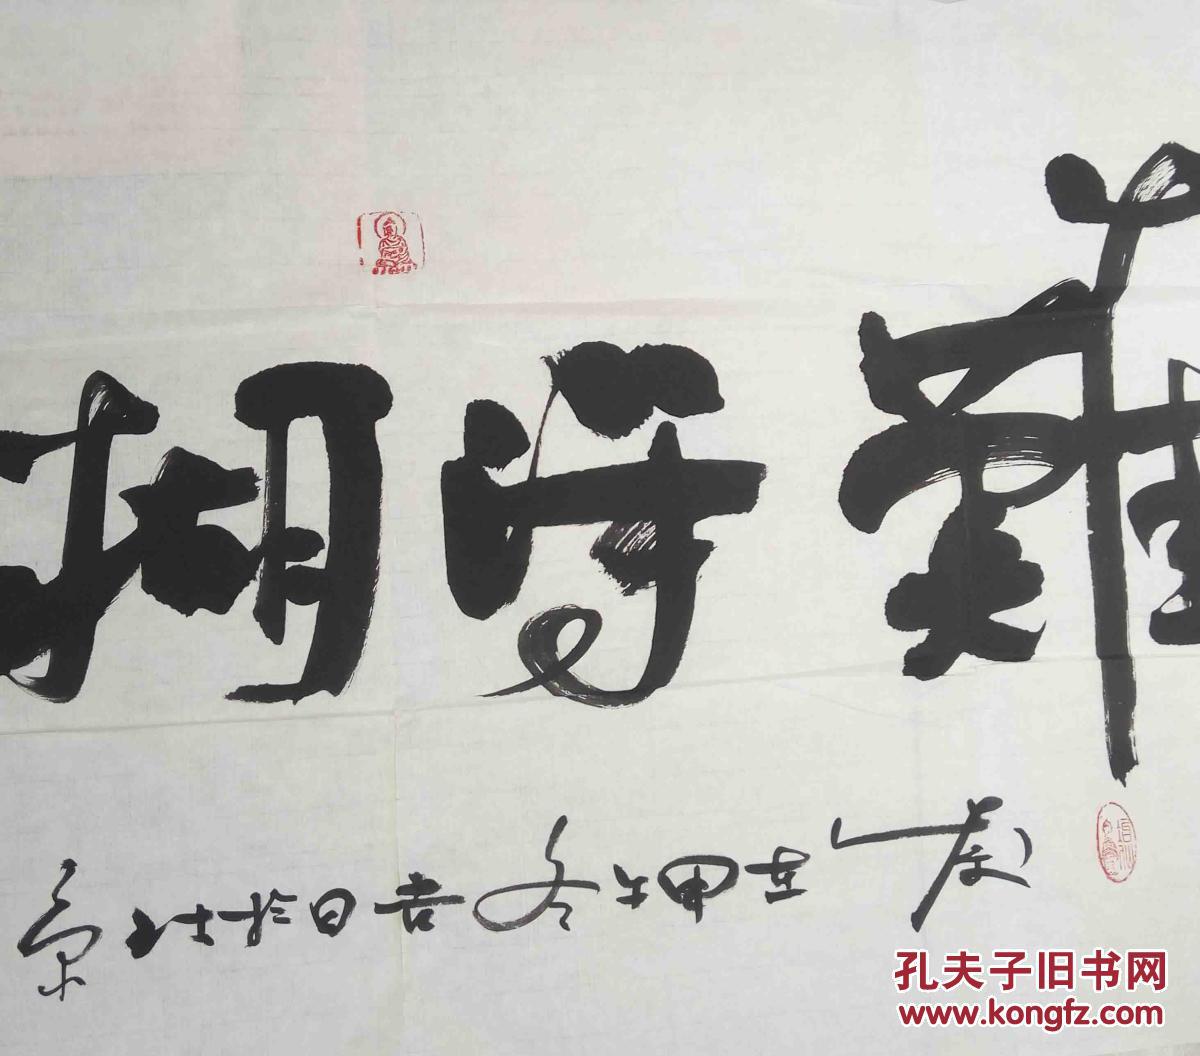 難得糊
歲在甲午冬吉日於北京
孔夫子旧书网
www.kongfz.com